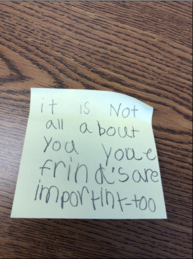 it is Not
all about
you youe
frind's are
importint-too